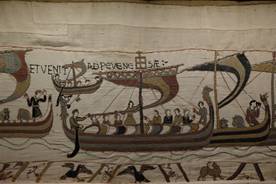 ET VENIT AD PEVENESÆ: